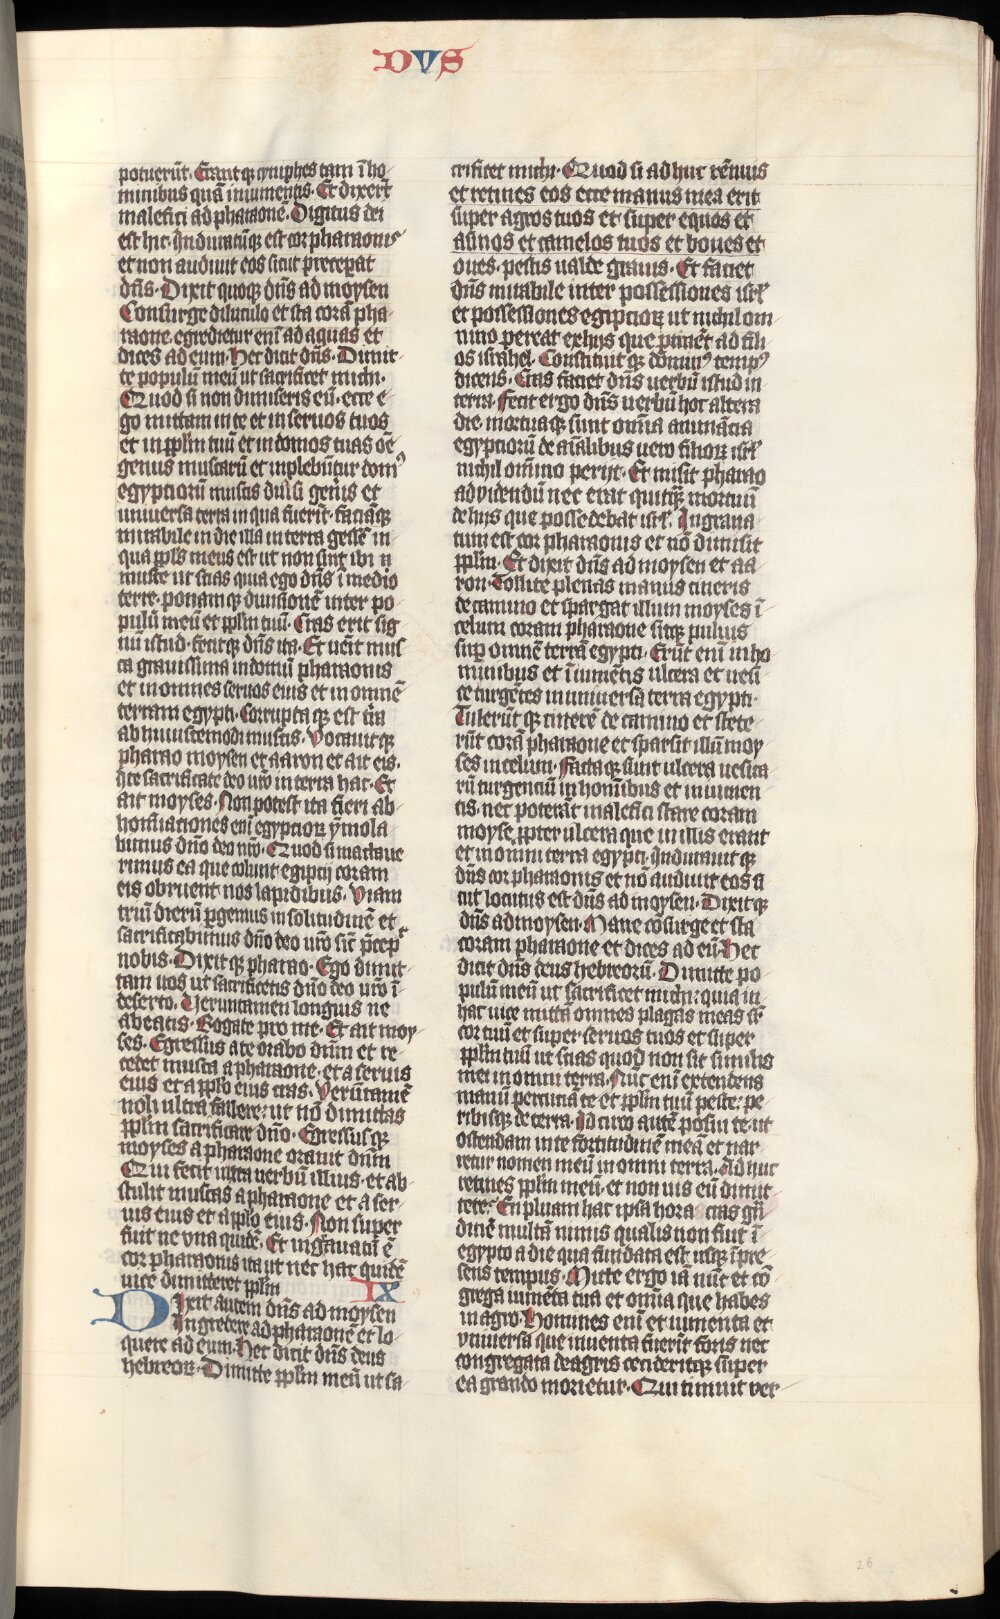 DVS
potuerūt. Erantqꝫ cyniphes tam ī ho
minibus quā in iumentis. Et dixerūt
malefici ad pharaonē. Digitus dei
est hic. Induratūqꝫ est cor pharaonis
et non audiuit eos sicut preceperat
dn̄s. Dixit quoqꝫ dn̄s ad moysen
Consurge diluculo et sta corā pha
raone. egredietur enī ad aquas et
dices ad eum. Hec dicit dn̄s. Dimit
te populū meū ut sacrificet michi.
Quod si non dimiseris eū. ecce e
go mittam in te et in seruos tuos
et in pplm tuū et in domos tuas oē
genus muscarū et inplebūtur domꝰ
egyptiorū muscis diūsi gen̄is et
uniuersa terra in qua fuerit. faciāqꝫ
mirabile in die illa in terra gessē in
qua ppls meus est ut non sint ibi
musce ut scias quia ego dn̄s ī medio
terre. ponamqꝫ diuisionē inter po
pulū meū et pplm tuū. Cras erit sig
nū istud. fecitqꝫ dn̄s ita. Et uēit mus
ca grauissima in domū pharaonis
et in omnes seruos eius et in omnē
terram egypti. Corruptaqꝫ est t̄ra
ab huiuscemodi muscis. Vocauitqꝫ
pharao moysen et aaron et ait eis.
Ite sacrificate deo vr̄o in terra hac. Et
ait moyses. Non potest ita fieri ab
hominationes enī egyptioꝝ ymola
bimus dn̄o deo nr̄o. Quod si mactaue
rimus ea que colunt egiptij coram
eis obruent nos lapidibus. Viam
triū dierū pergemus in solitudinē et
sacrificabimus dn̄o deo nr̄o sic̄ p̄cep
nobis. Dixitqꝫ pharao. Ego dimit
tam uos ut sacrificetis dn̄o deo vr̄o ī
deserto. Verumtamen longius ne
abeatis. Rogate pro me. Et ait moy
ses. Egressus a te orabo dn̄m et re
cedet musca a pharaone. et a seruis
eius et a pplo eius cras. Verūtamē
noli ultra fallere. ut nō dimittas
pplm sacrificare dn̄o. Egressusqꝫ
moyses a pharaone orauit dn̄m
Qui fecit iuxta uerbū illius. et ab
stulit muscas a pharaone et a ser
uis eius et a pplo eius. Non super
fuit ne vna quidē. Et ingrauatū ē
cor pharaonis ita ut nec hac quidē
uice dimitteret pplm IX
Dixit autem dn̄s ad moysen
Ingredere ad pharaonē et lo
quere ad eum. Hec dicit dn̄s deus
hebreoꝝ. Dimitte pplm meū ut sa
crificet michi. Quod si adhuc rēnuis
et retines eos ecce manus mea erit
super agros tuos et super equos et
asinos et camelos tuos et boues et
oues. pestis ualde grauis. Et faciet
dn̄s mirabile inter possessiones isrl̄
et possessiones egiptioꝝ ut nichil om
nino pereat ex hijs que ptinēt ad fili
os israhel. Constituitqꝫ dominꝰ tempꝰ
dicens. Cras faciet dn̄s uerbū istud in
terra. fecit ergo dn̄s uerbū hoc altera
die. mortuaqꝫ sunt omīa animācia
egyptiorū de aīalibus uero filioꝝ isrl̄
nichil omīno perijt. Et misit pharao
ad videndū nec erat quitqꝫ mortuū
de hijs que possedebat isrl̄. Ingraua
tum est cor pharaonis et nō dimisit
pplm. Et dixit dn̄s ad moysen et aa
ron. Tollite plenas manus cineris
de camino et spargat illum moyses ī
celum coram pharaone sitqꝫ puluis
sup omnē terrā egypti. Erūt enī in ho
minibus et ī iumētis ulcera et uesi
ce turgētes in uniuersa terra egypti.
Tulerūtqꝫ cinerē de camino et stete
rūt corā pharaone et sparsit illū moy
ses in celum. Factaqꝫ sunt ulcera uesica
rū turgenciū in hominibus et in iumen
tis. nec poterāt malefici stare coram
moyse ppter ulcera que in illis erant
et in omni terra egypti. Indurauitqꝫ
dn̄s cor pharaonis et nō audiuit eos si
cut locutus est dn̄s ad moysen. Dixitqꝫ
dn̄s ad moysen. Mane cōsurge et sta
coram pharaone et dices ad eū. Hec
dicit dn̄s deus hebreorū. Dimitte po
pulū meū ut sacrificet michi. quia in
hac uice mittā omnes plagas meas sr̄
cor tuū et super seruos tuos et super
pplm tuū ut scias quod non sit similis
mei in omni terra. Nūc enī extendens
manū percuciā te et pplm tuū peste. pe
ribisqꝫ de terra. Idcirco autē posui te ut
ostendam in te fortitudinē meā et nar
retur nomen meū in omni terra. Adhuc
retines pplm meū. et non uis eū dimit
tere. En pluam hac ipsa hora cras grā
dinē multā nimis qualis non fuit ī
egypto a die qua fundata est usqꝫ ī pre
sens tempus. Mitte ergo iā nūc et cō
grega iumēta tua et omīa que habes
in agro. Homines enī et iumenta et
vniuersa que inuenta fuerīt foris nec
congregata de agris cecideritqꝫ super
ea grando morietur. Qui timuit ver
26